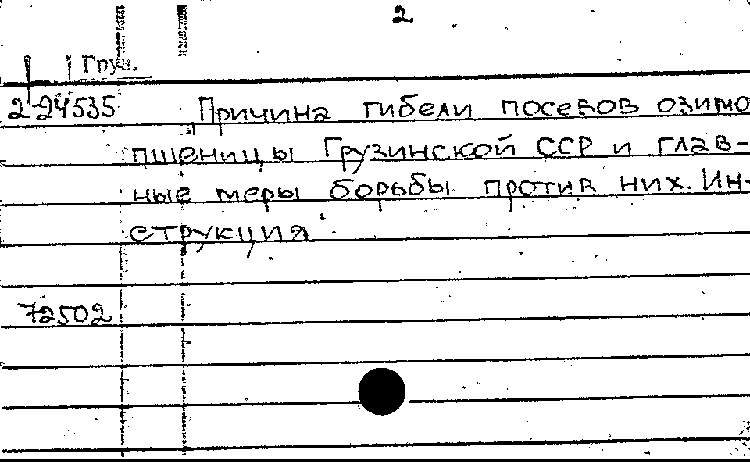 2
Груз.
2-24535 Причина гибели посевов озимо
пшеницы Грузинской ССР и глав-
ные меры борьбы против них. Ин-
струкция
72502